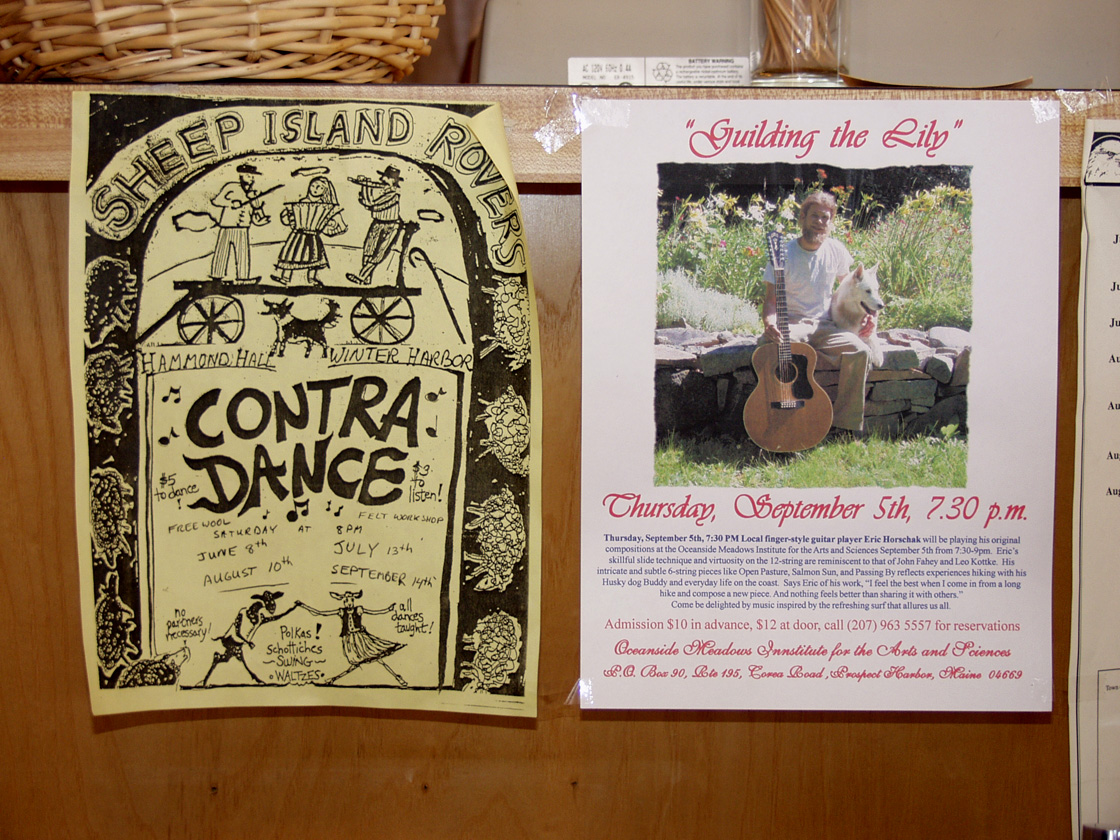 AC 120V 60Hz 0.4A
BATTERY WARNING
SHEEP ISLAND ROVERS
HAMMOND HALL WINTER HARBOR
CONTRA
DANCE
$5
to dance
!
$3
to
listen!
FREE WOOL FELT WORKSHOP
SATURDAY AT 8PM
JUNE 8th JULY 13th
AUGUST 10th SEPTEMBER 14th
no
partners
necessary!
Polkas!
Schottiches
~SWING~
WALTZES
all
dances
taught!
"Guilding the Lily"
Thursday, September 5th, 7.30 p.m.
Thursday, September 5th, 7:30 PM Local finger-style guitar player Eric Horschak will be playing his original
compositions at the Oceanside Meadows Institute for the Arts and Sciences September 5th from 7:30-9pm. Eric's
skillful slide technique and virtuosity on the 12-string are reminiscent to that of John Fahey and Leo Kottke. His
intricate and subtle 6-string pieces like Open Pasture, Salmon Sun, and Passing By reflects experiences hiking with his
Husky dog Buddy and everyday life on the coast. Says Eric of his work, "I feel the best when I come in from a long
hike and compose a new piece. And nothing feels better than sharing it with others."
Come be delighted by music inspired by the refreshing surf that allures us all.
Admission $10 in advance, $12 at door, call (207) 963 5557 for reservations
Oceanside Meadows Innstitute for the Arts and Sciences
P.O. Box 90, Rte 195, Corea Road, Prospect Harbor, Maine 04669